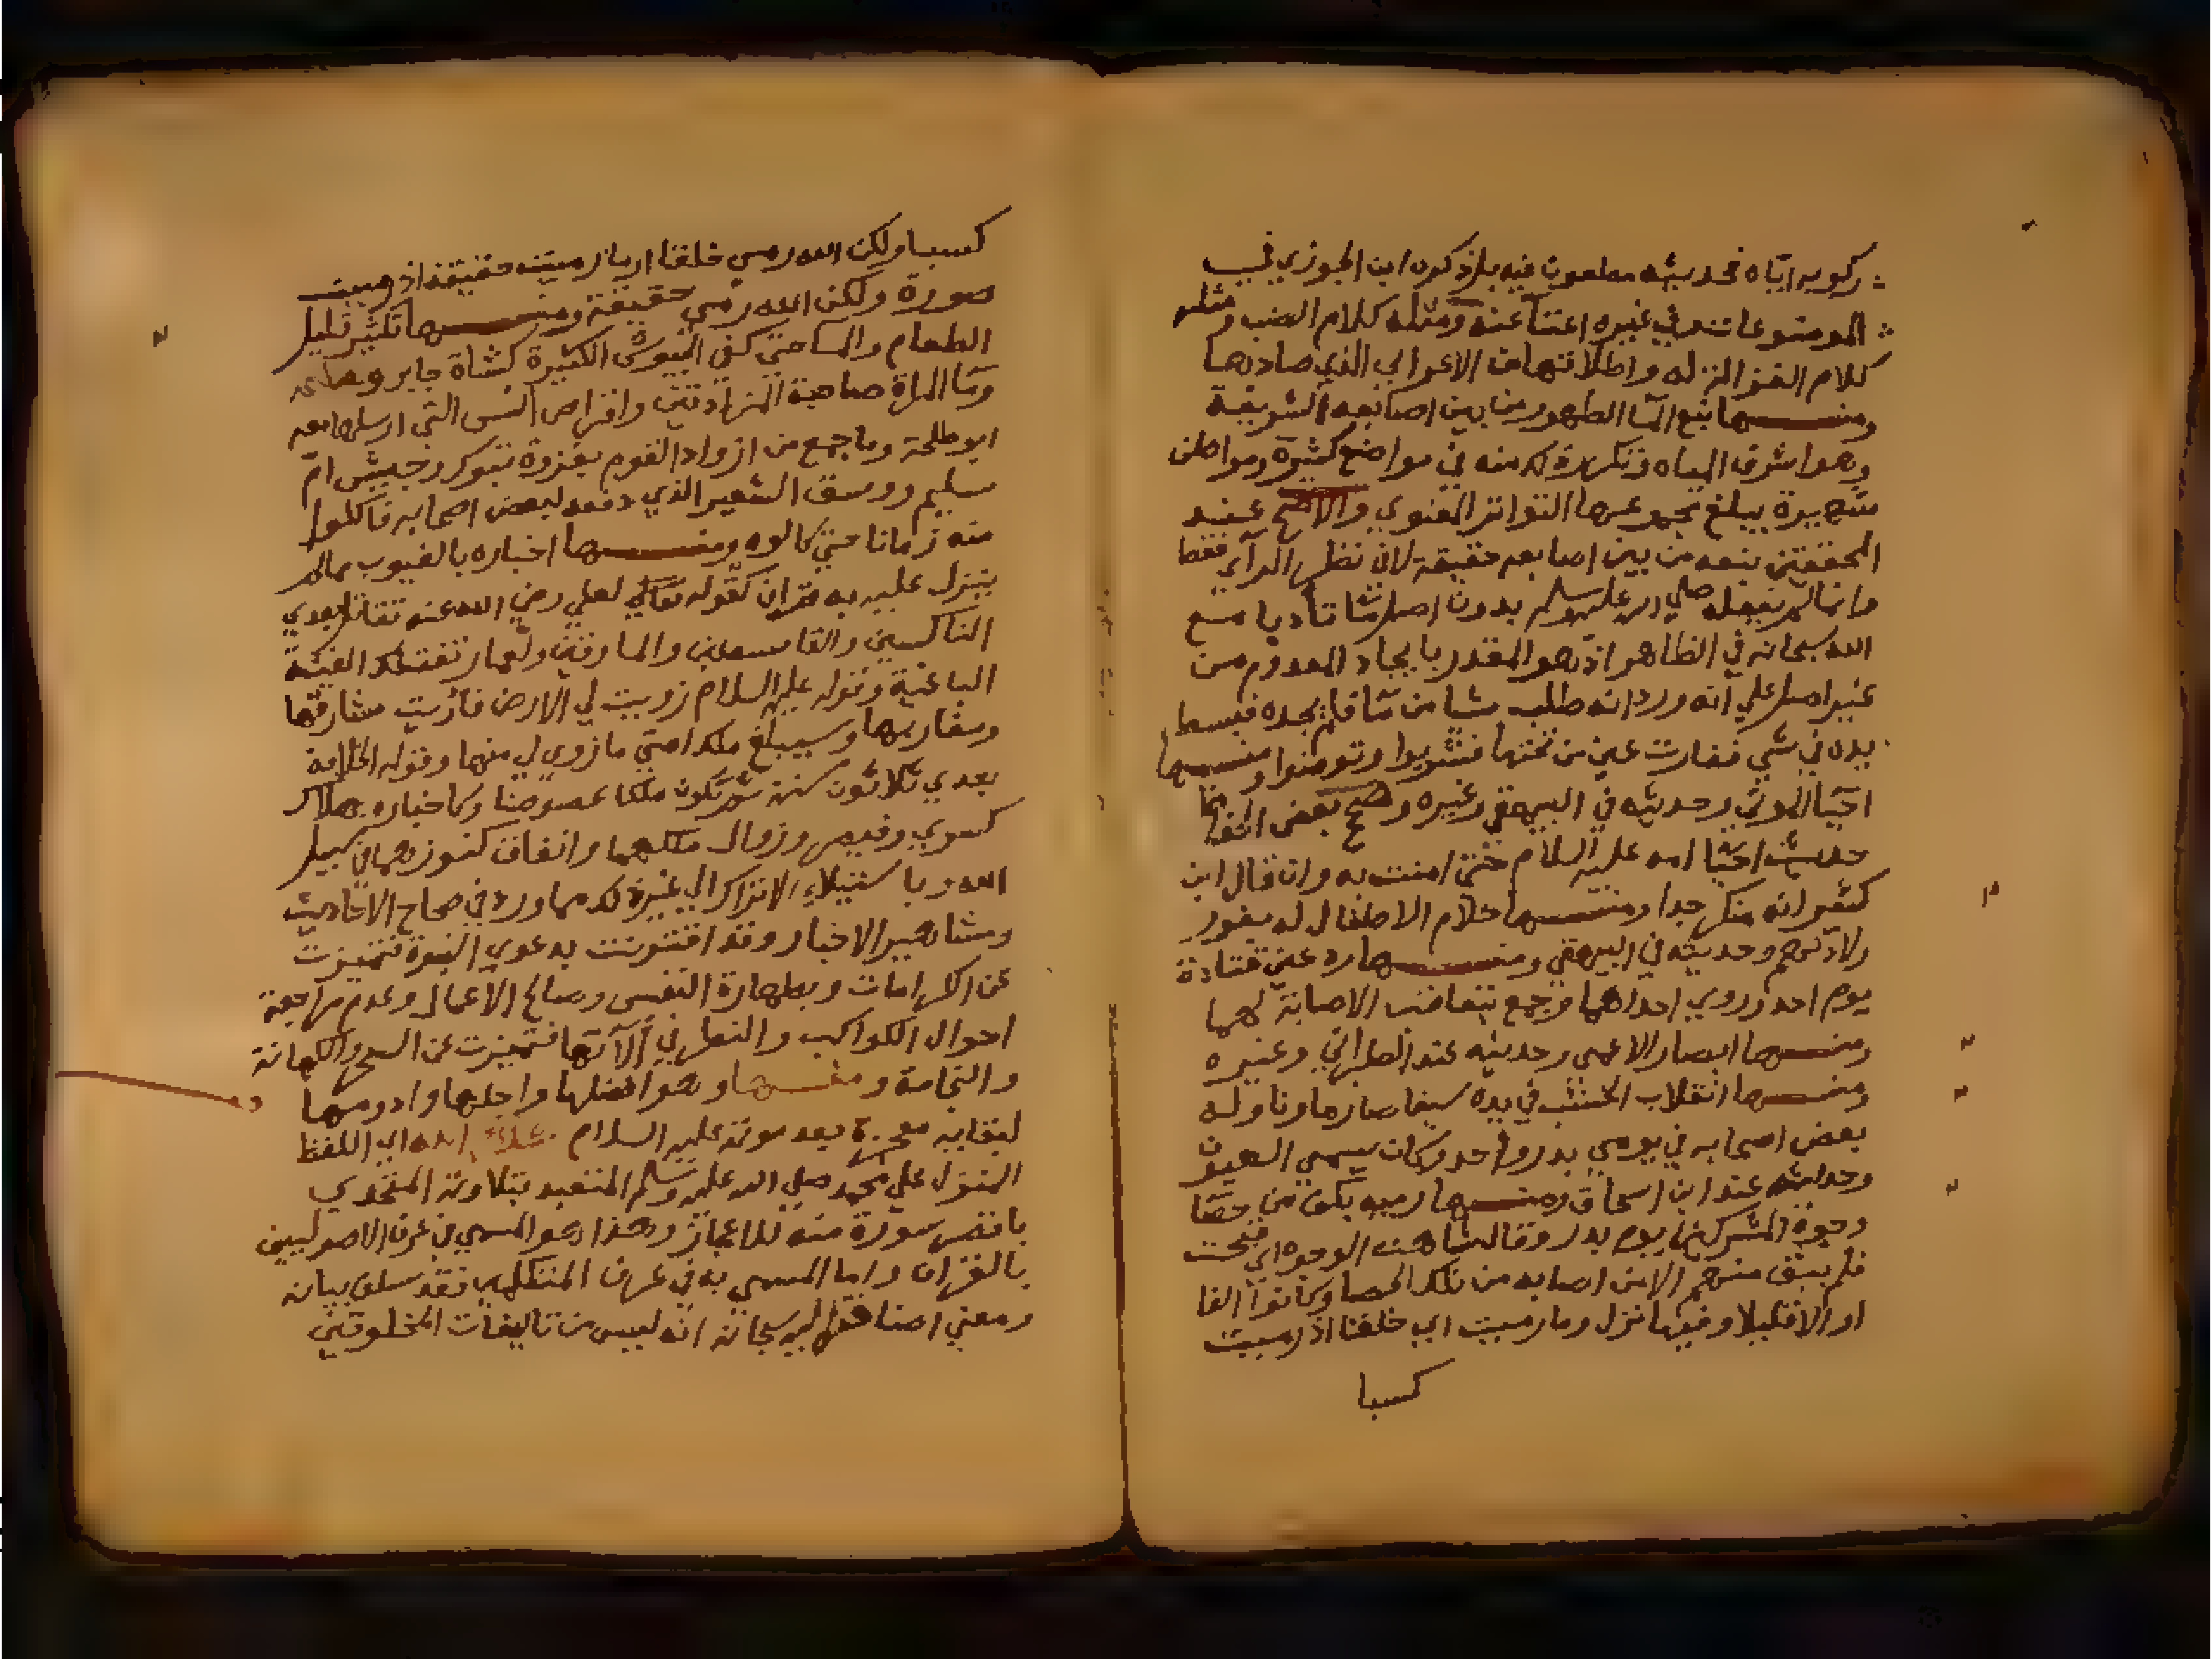 ركوبه اياه فحديثه مطعون فيه بل ذكره ابن الجوزي في
الموضوعات في غيره عنه ومثله كلام الضب ومثله
كلام الغزالة واطلاقها من الاعرابي الذي صادها
ومنها نبع الما الطهور من بين اصابعه الشريفة
وهو اشرف المياه وتكرر ذلك منه في مواضع كثيرة ومواطن
شهيرة يبلغ مجموعها التواتر المعنوي والاصح عند
المحققين نبعه من بين اصابعه حقيقة لا في نظر الرآي فقط
وانما لم يفعله صلي الله عليه وسلم بدون اصل ما تأدبا مع
الله سبحانه في الظاهر اذ هو المقدر بايجاد المعدوم من
غير اصل علي انه ورد انه طلب ما فلم يجده فبسط
يده في شي ففارت عين من تحتها فشربوا وتوضوا ومنها
احيا الموتي وحديثه في البيهقي وغيره وصح بعض الحفاظ
حديث احيا امه عليه السلام حتي امنت به وان قال ابن
كثير انه منكر جدا ومنها كلام الاطفال له بفور
ولادتهم وحديثه في البيهقي ومنها رد عين قتادة
يوم احد وروي احداهما وجمع الاصابة لهما
ومنها ابصار الاعمي وحديثه عند الطبراني وغيره
ومنها انقلاب الخشب في يده سيفا صارما وناوله
بعض اصحابه في يومي بدر واحد وكان يسمي العون
وحديثه عند ابن اسحاق ومنها رميه بكف من حصا
وجوه المشركين يوم بدر وقال شاهت الوجوه اي قبحت
فلم يبق منهم الا من اصابه من تلك الحصا وكانوا الفا
او الا قليلا وفيها نزل وما رميت اي خلقا اذ رميت
كسبا
كسبا ولكن الله رمي خلقا او ما رميت حقيقة اذ رميت
صورة ولكن الله رمي حقيقة ومنها تكثير قليل
الطعام والما حتي كفي الجيوش الكثيرة كشاة جابر وصاعه
وما المراة صاحبة المزادتين واقراص انس التي ارسلها معه
ابو طلحة وما جمع من ازواد القوم بغزوة تبوك وحيس ام
سليم ووسق الشعير الذي دفعه لبعض اصحابه فاكلوا
منه زمانا حتي كالوه ومنها اخباره بالغيوب مما لم
ينزل عليه به قران كقوله لعلي رضي الله عنه تقاتل بعدي
الناكثين والقاسطين والمارقين ولعمار تقتلك الفئة
الباغية وقوله عليه السلام زويت لي الارض فأريت مشارقها
ومغاربها وسيبلغ ملك امتي ما زوي لي منها وقوله الخلافة
بعدي ثلاثون سنة ثم تكون ملكا عضوضا وكاخباره بهلاك
كسري وقيصر وزوال ملكهما وانفاق كنوزهما في سبيل
الله وباستيلاء الاتراك الي غير ذلك مما ورد في صحاح الاحاديث
ومشاهير الاخبار وقد اقترنت بدعوي النبوة فتميزت
عن الكرامات وبطهارة النفس وصالح الاعمال وعدم مراجعة
احوال الكواكب والنظر في آلاتها فتميزت عن السحر والكهانة
والنجامة ومنها وهو افضلها واجلها وادومها
لبقايه معجزة بعد موته عليه السلام كلام الله اي اللفظ
المنزل علي محمد صلي الله عليه وسلم المتعبد بتلاوته المتحدي
باقصر سورة منه للاعجاز وهذا هو المسمي في عرف الاصوليين
بالقران واما المسمي به في عرف المتكلمين فقد سلف بيانه
ومعني اضافته اليه سبحانه انه ليس من تاليفات المخلوقين